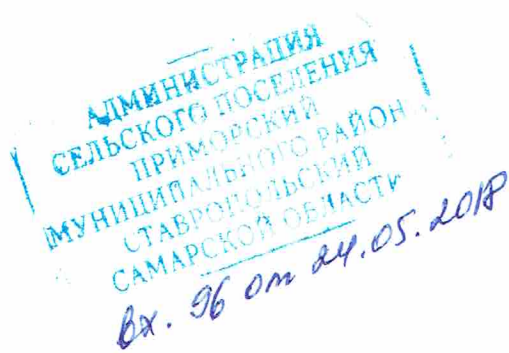 АДМИНИСТРАЦИЯ
СЕЛЬСКОГО ПОСЕЛЕНИЯ
ПРИМОРСКИЙ
МУНИЦИПАЛЬНОГО РАЙОН
СТАВРОПОЛЬСКИЙ
САМАРСКОЙ ОБЛАСТИ
Вх. 96 от 24.05.2018